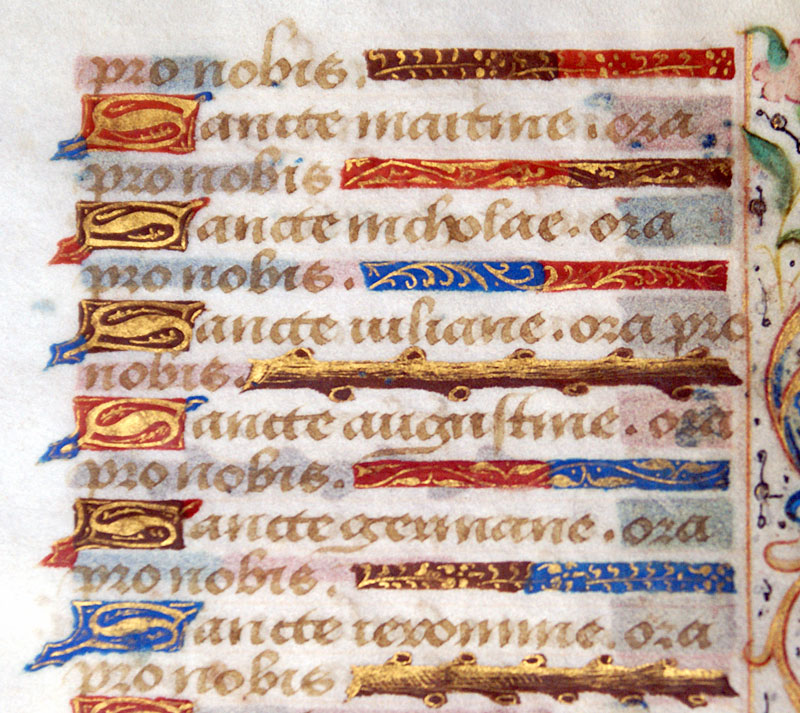 pro nobis.
Sancte martine. ora
pro nobis
Sancte nicholae. ora
pro nobis.
Sancte iuliane. ora pro
nobis.
Sancte augustine. ora
pro nobis.
Sancte germane. ora
pro nobis.
Sancte ieronime. ora
pro nobis